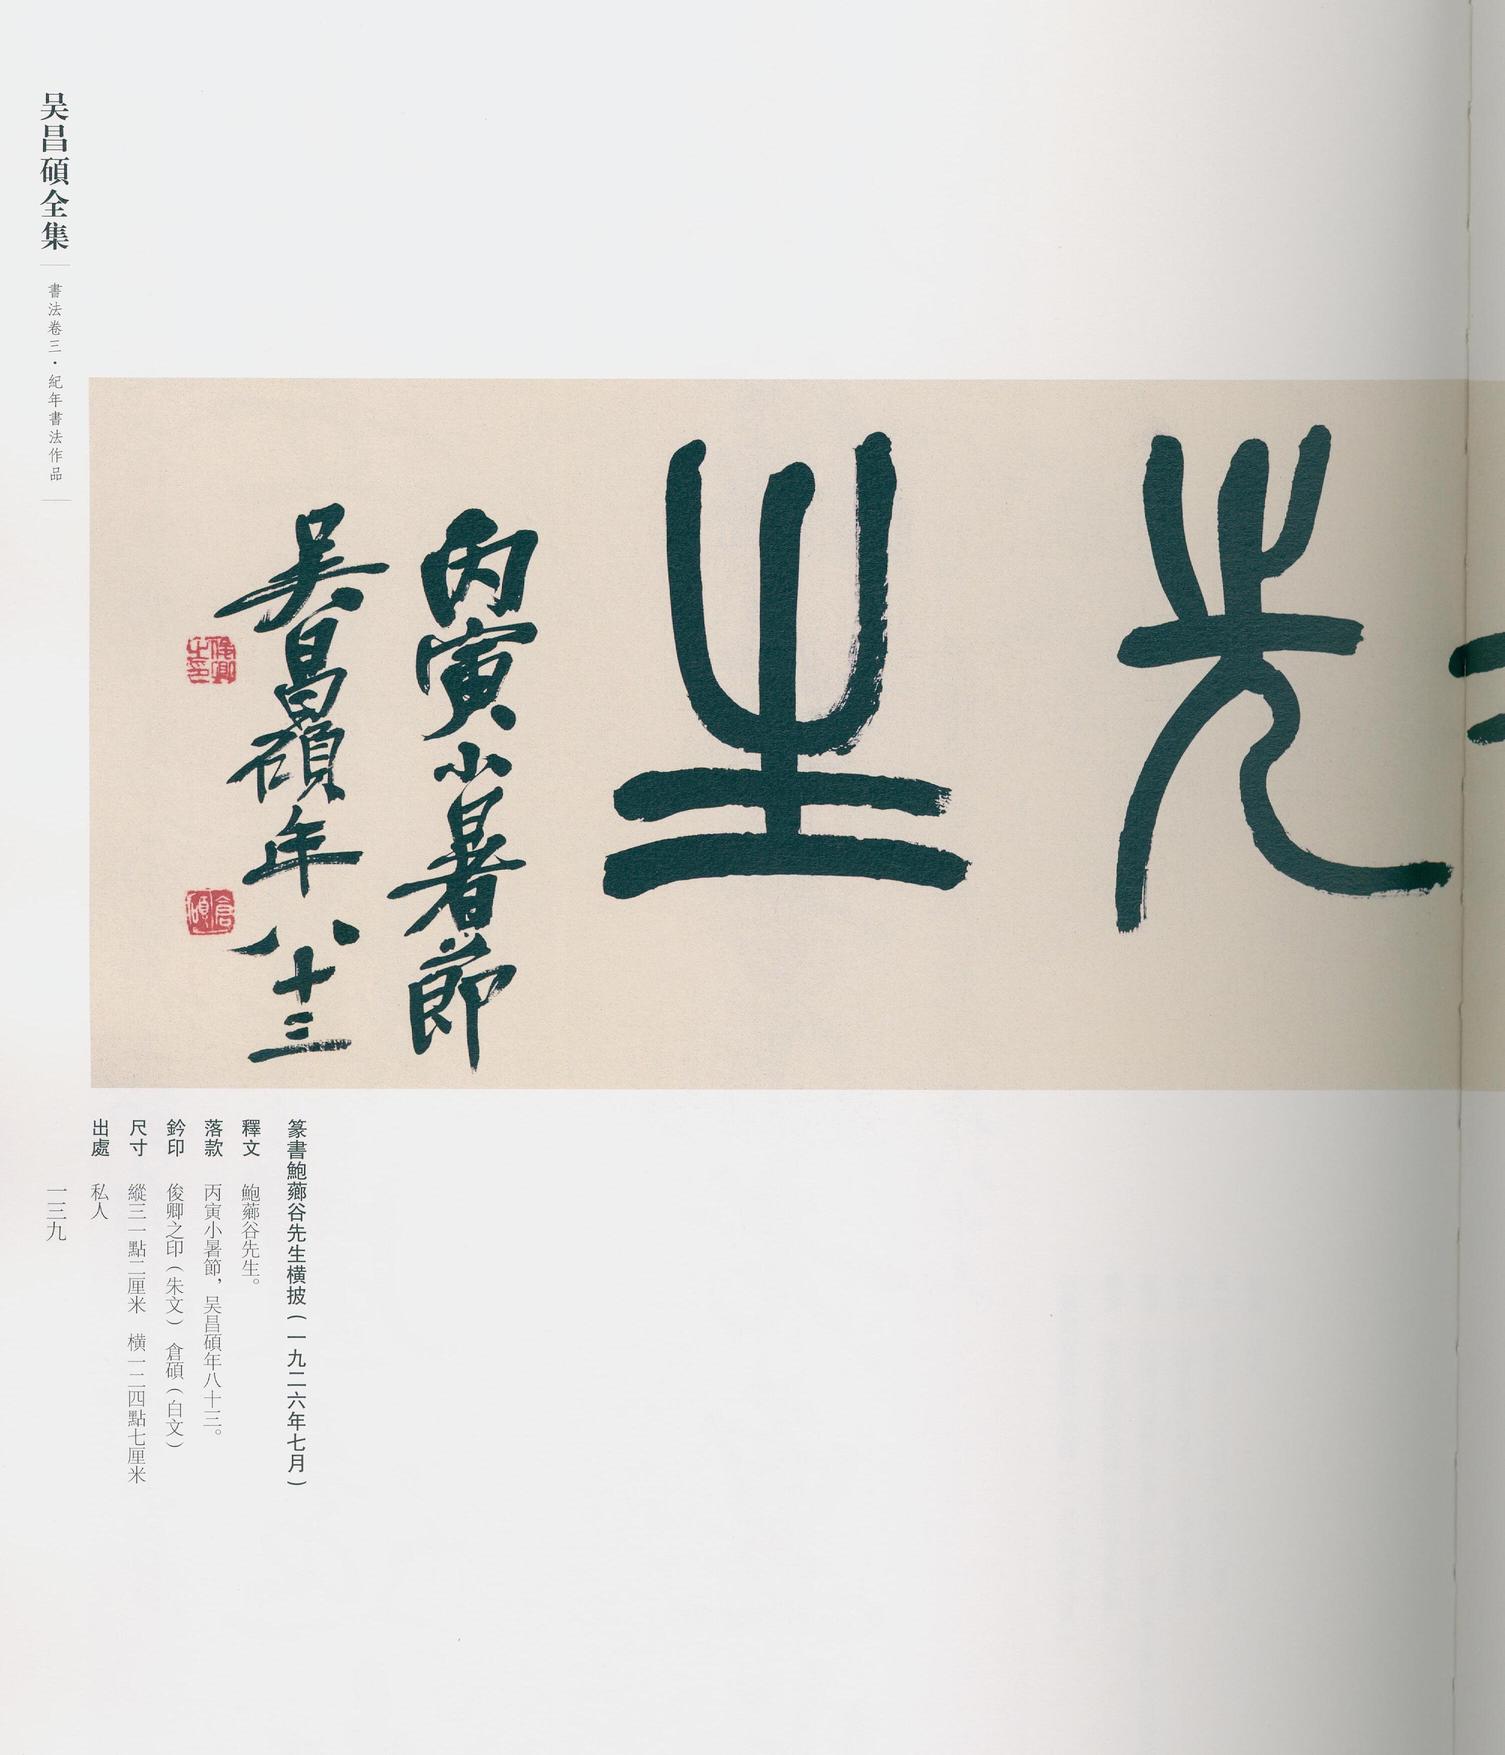 先生
丙寅小暑節
吳昌碩年八十三
俊卿之印
倉碩
篆書鮑薌谷先生橫披(一九二六年七月)
釋文 鮑薌谷先生。
落款 丙寅小暑節,吴昌碩年八十三。
鈐印 俊卿之印(朱文) 倉碩(白文)
尺寸 縱三一點二厘米 橫一二四點七厘米
出處 私人
吴昌碩全集
書法卷三·紀年書法作品
一三九